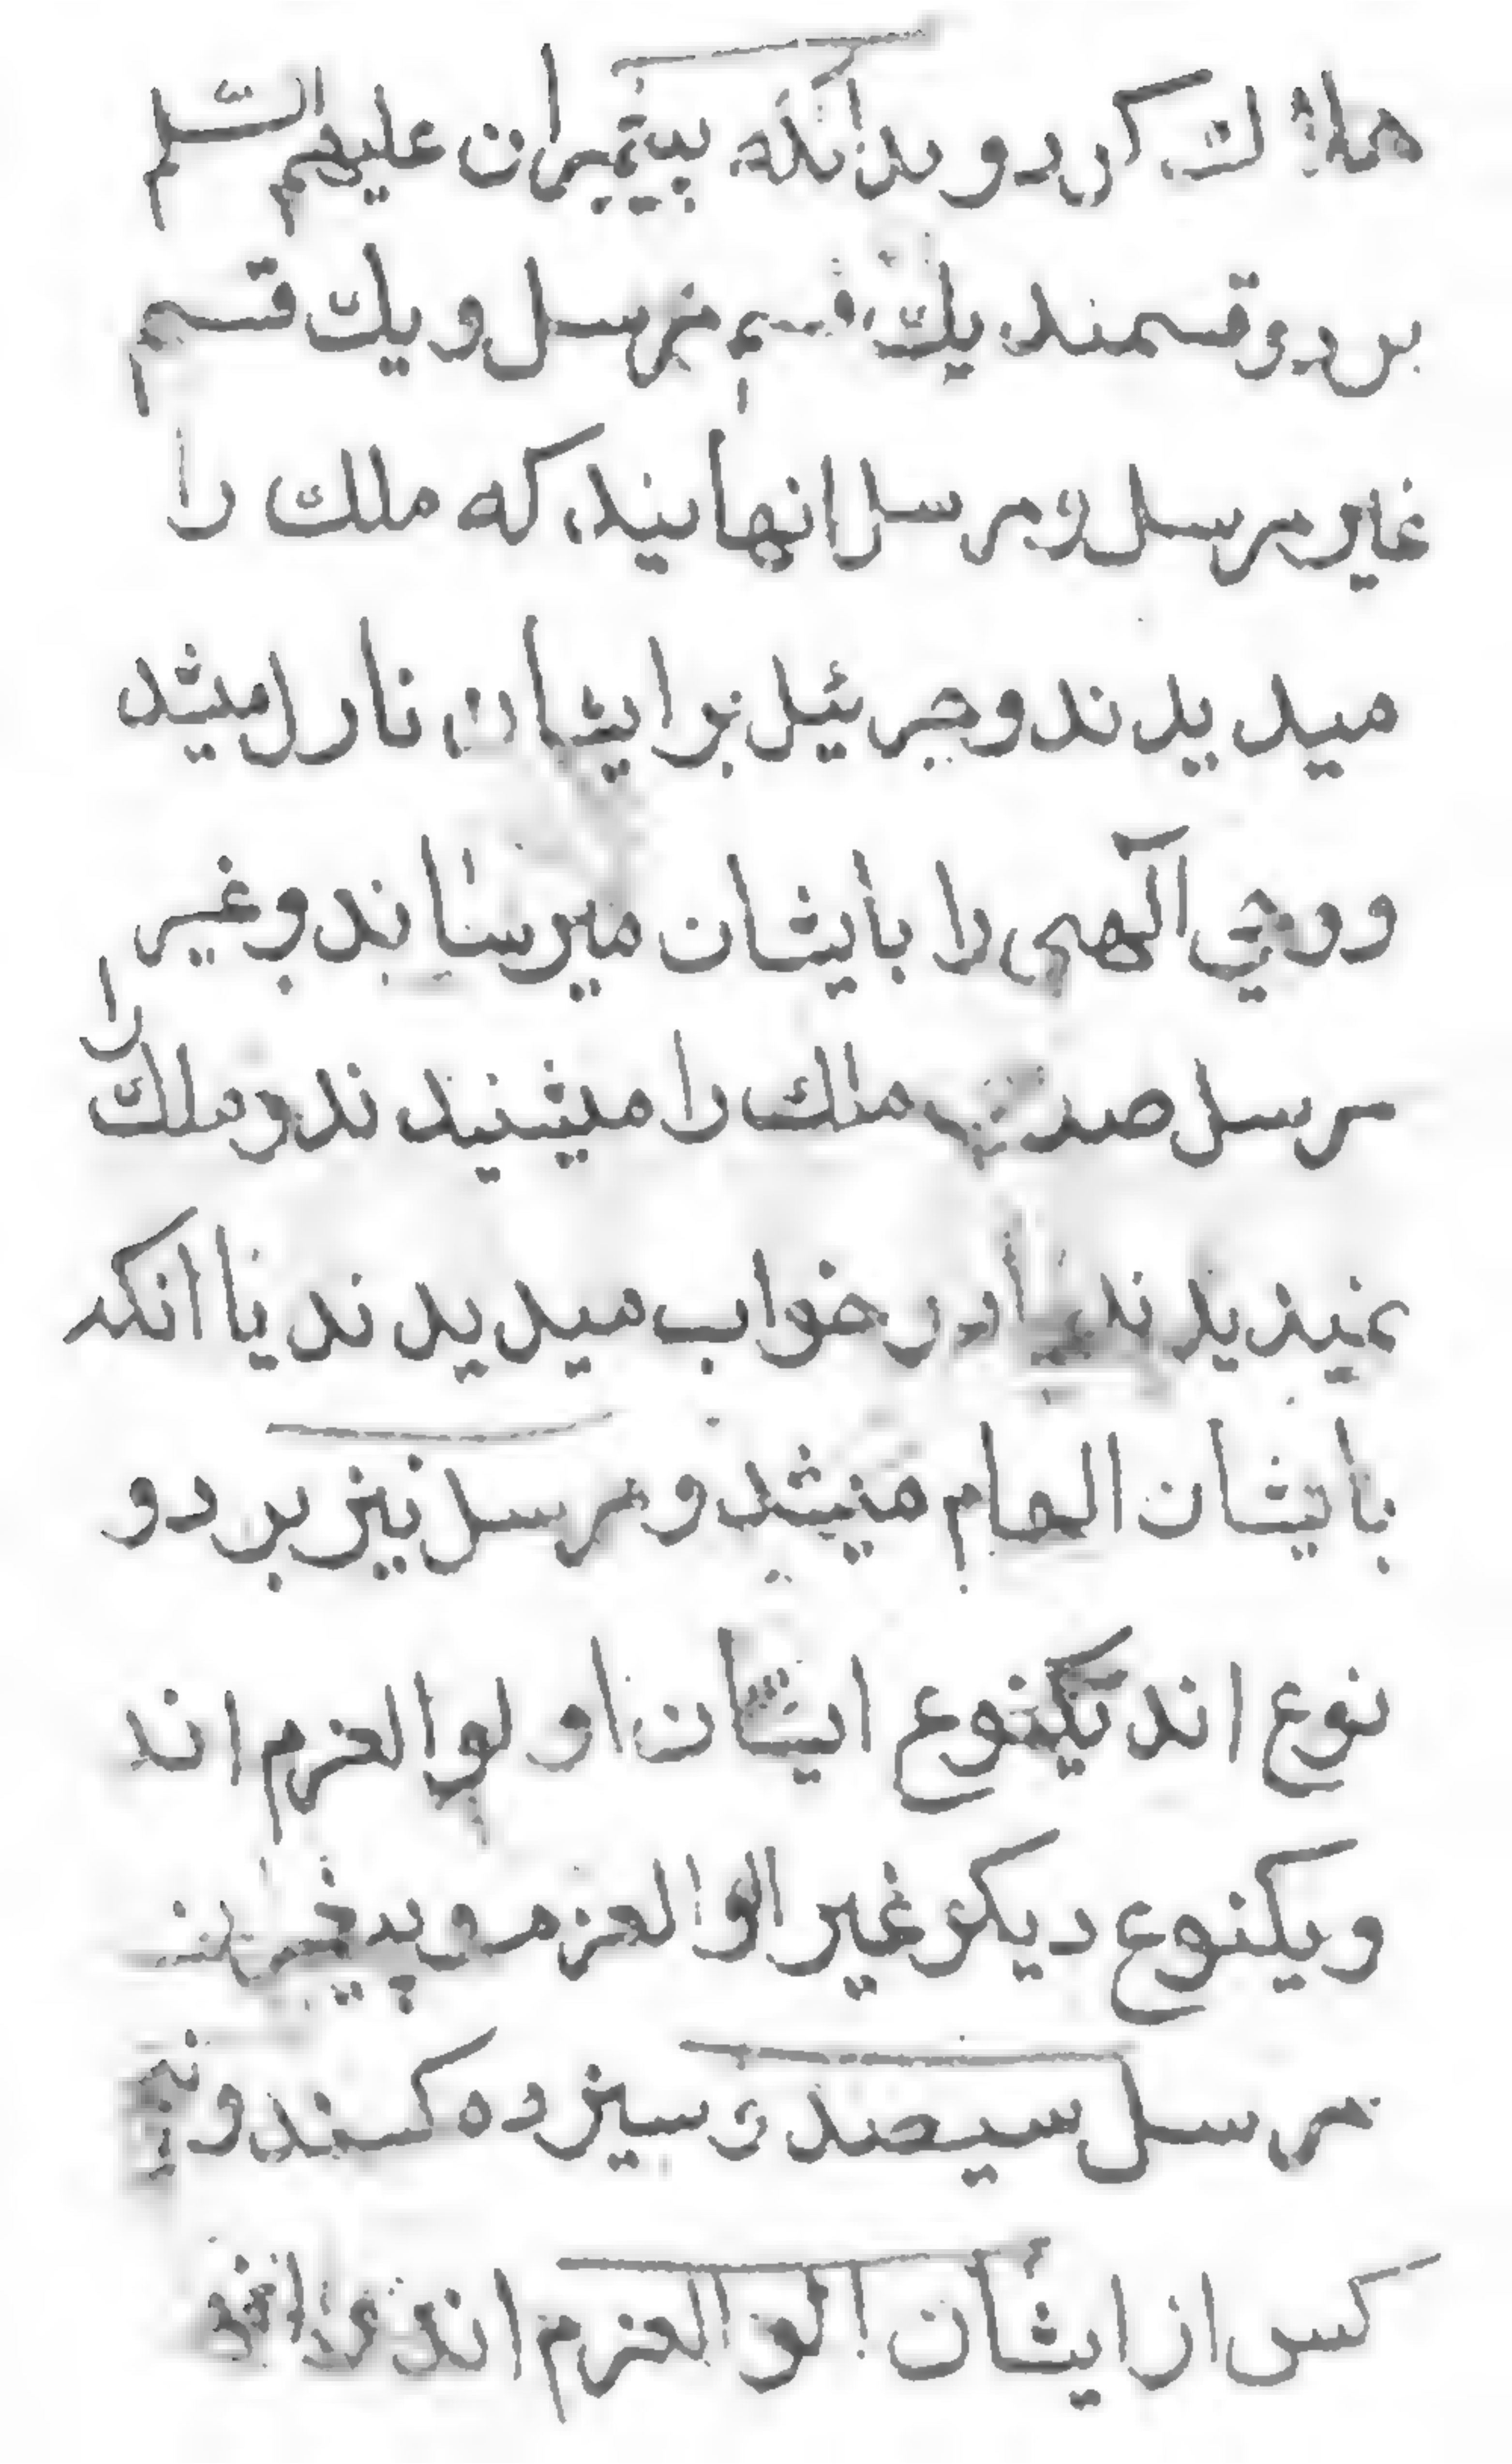 هلاك كرد و بدانكه پیغمبران علیهم السّلم
بر دو قسمند یك قسم مرسل و یك قسم
غیر مرسل و مرسل انهایند که ملك را
میدیدند و جبرئیل بر ایشان نازل میشد
و وحی آلهی را بایشان میرساند و غیر
مرسل صدای ملك را میشنیدند و ملك را
نمیدیدند یا در خواب میدیدند یا انكه
بایشان الهام میشد و مرسل نیز بر دو
نوع اند یکنوع ایشان اولوالعزم اند
و یکنوع دیکر غیر الوالعزم و پیغمبران
مرسل سیصد و سیزده کسند و پنج
کس از ایشان الوالعزم اند